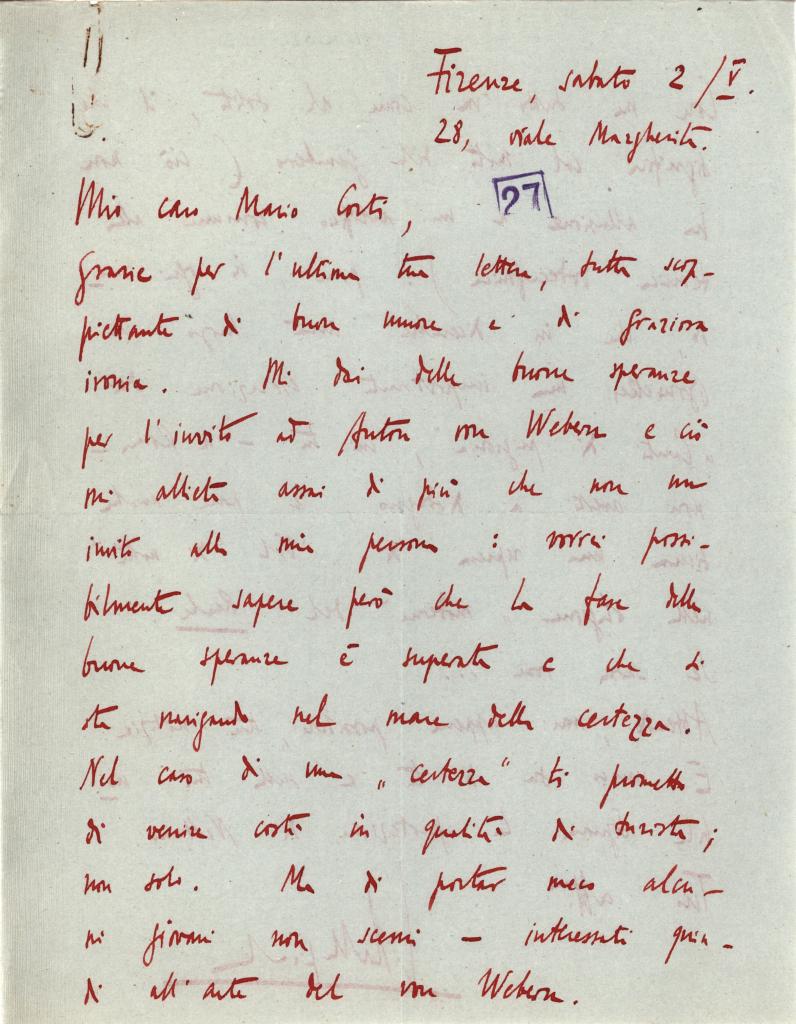 Firenze, sabato 2/V.
28, viale Margherita.
27
Mio caro Mario Corti,
grazie per l'ultima tua lettera, tutta scop-
piettante di buon umore e di graziosa
ironia. Mi dai delle buone speranze
per l'invito ad Anton von Webern e ciò
mi allieta assai di più che non un
invito alla mia persona: vorrei possi-
bilmente sapere però che la fase delle
buone speranze è superata e che si
sta navigando nel mare della certezza.
Nel caso di una „certezza" ti prometto
di venire costì in qualità di turista;
non solo. Ma di portar meco alcu-
ni giovani non scemi — interessati quin-
di all'arte del von Webern.